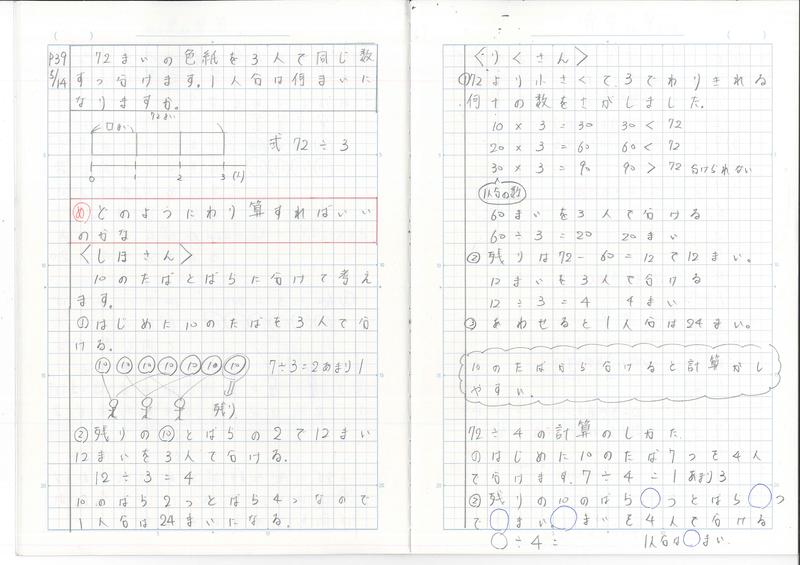 P39
5/14
72まいの色紙を3人で同じ数
ずつ分けます。1人分は何まいに
なりますか。
72まい
□まい
式 72÷3
0 1 2 3 (人)
め どのようにわり算すればいい
のかな
〈しほさん〉
10のたばとばらに分けて考え
ます。
①はじめに10のたばを3人で分
ける。
10 10 10 10 10 10 10 7÷3=2あまり1
残り
②残りの⑩とばらの2で12まい
12まいを3人で分ける。
12÷3=4
10のばら2つとばら4つなので
1人分は24まいになる。
〈りくさん〉
①72より小さくて、3でわりきれる
何十の数をさがしました。
10×3=30 30<72
20×3=60 60<72
30×3=90 90>72 分けられない
1人分の数
60まいを3人で分ける
60÷3=20 20まい
②残りは72-60=12で12まい。
12まいを3人で分ける
12÷3=4 4まい
③あわせると1人分は24まい。
10のたばから分けると計算がし
やすい。
72÷4の計算のしかた
はじめに10のたば7つを4人
で分けます。7÷4=1あまり3
②残りの10のばら○つとばら○つ
で○まい。○まいを4人で分ける
○÷4= 1人分は○まい。